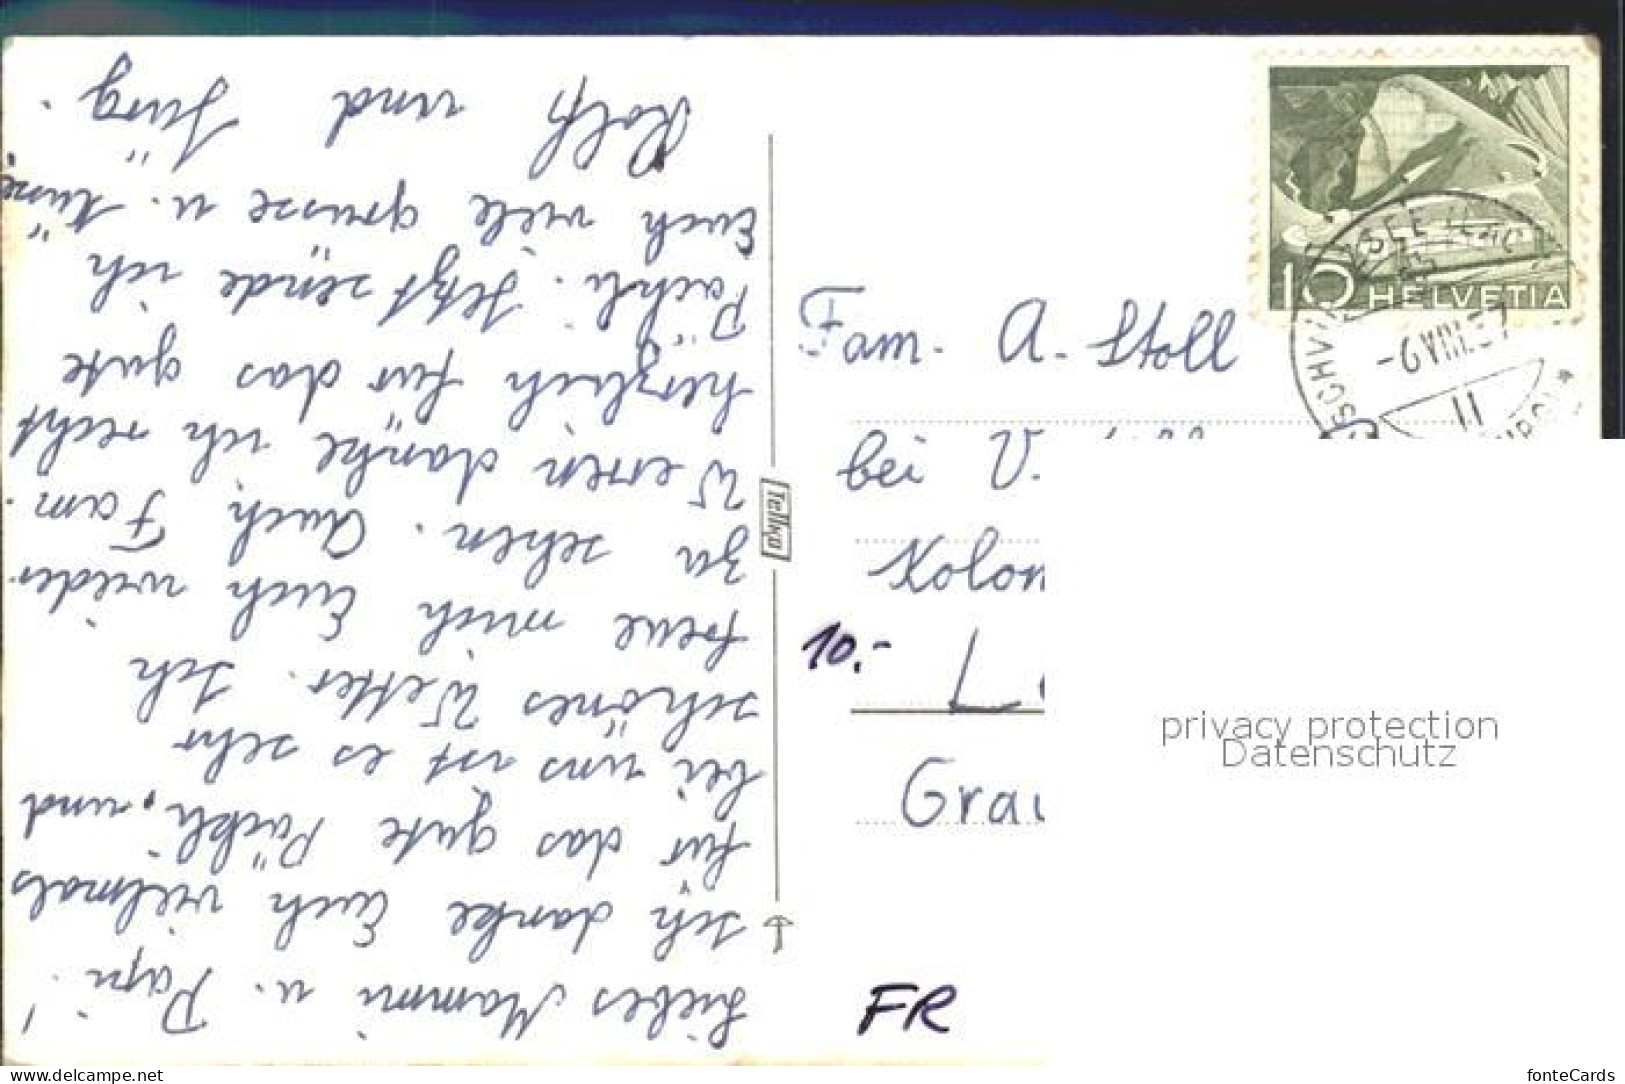 Liebes Mammi u. Papi!
Ich danke Euch vielmals
für das gute Päckli, und
bei uns ist es sehr
schönes Wetter. Ich
freue mich Euch wieder
zu sehen. Auch Fam.
Werren danke ich recht
herzlich für das gute
Päckli. Jetzt sende ich
Euch viele grüsse u. küsse
Rolf und Jürg.
Tellko
10 HELVETIA
-6.VIII.57
11
Fam. A. Stoll
bei V.
Kolon
10.-
L
Grau
FR
privacy protection
Datenschutz
www.delcampe.net
fonteCards